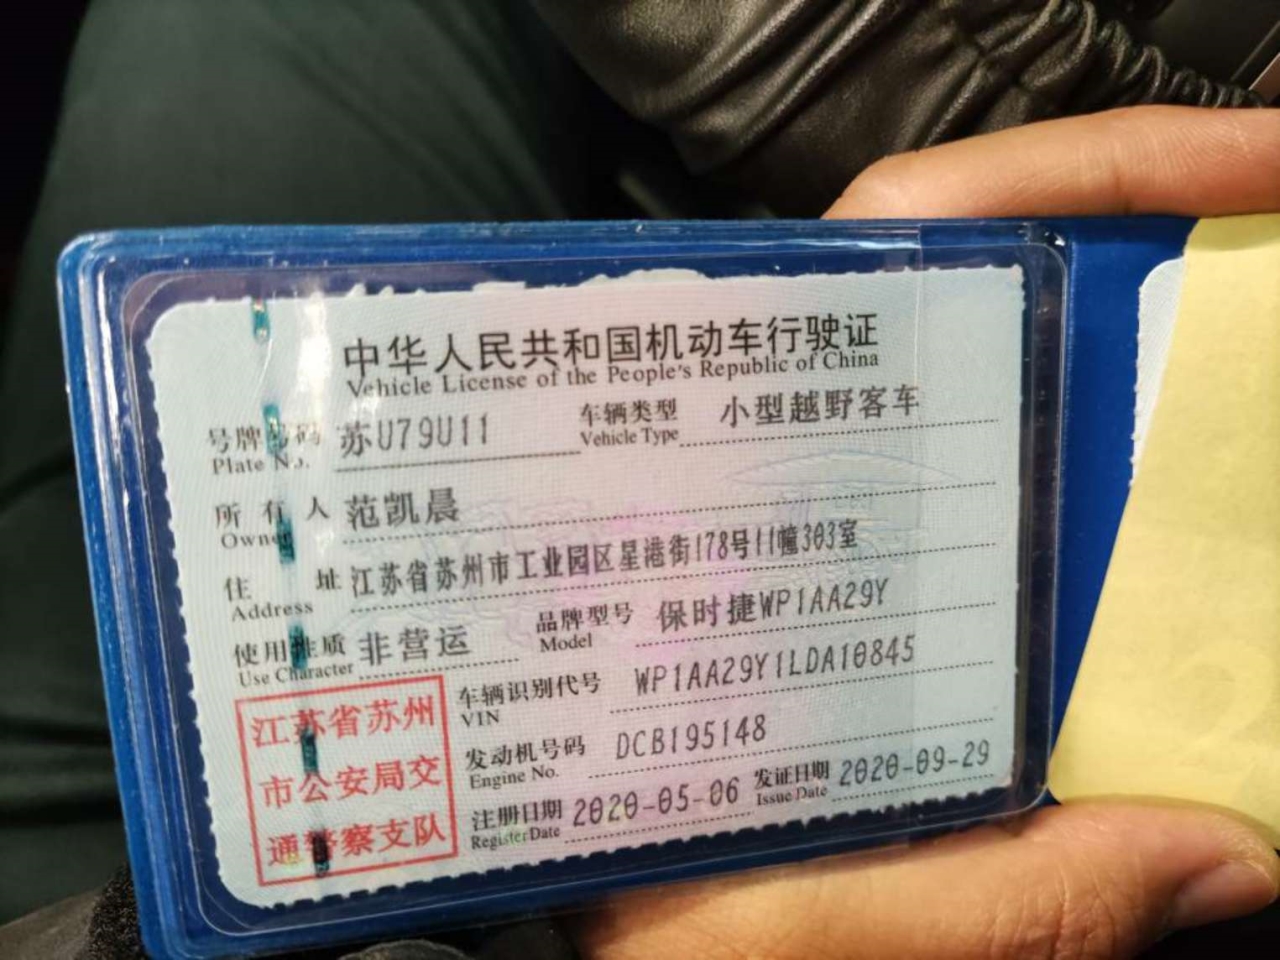 中华人民共和国机动车行驶证
Vehicle License of the People's Republic of China
号牌号码 苏U79U11 车辆类型 小型越野客车
Plate No. Vehicle Type
所有人 范凯晨
Owner
住址 江苏省苏州市工业园区星港街178号11幢303室
Address
使用性质 非营运 品牌型号 保时捷WP1AA29Y
Use Character Model
车辆识别代号 WP1AA29Y1LDA10845
VIN
发动机号码 DCB195148
Engine No.
注册日期 2020-05-06 发证日期 2020-09-29
Register Date Issue Date
江苏省苏州
市公安局交
通警察支队